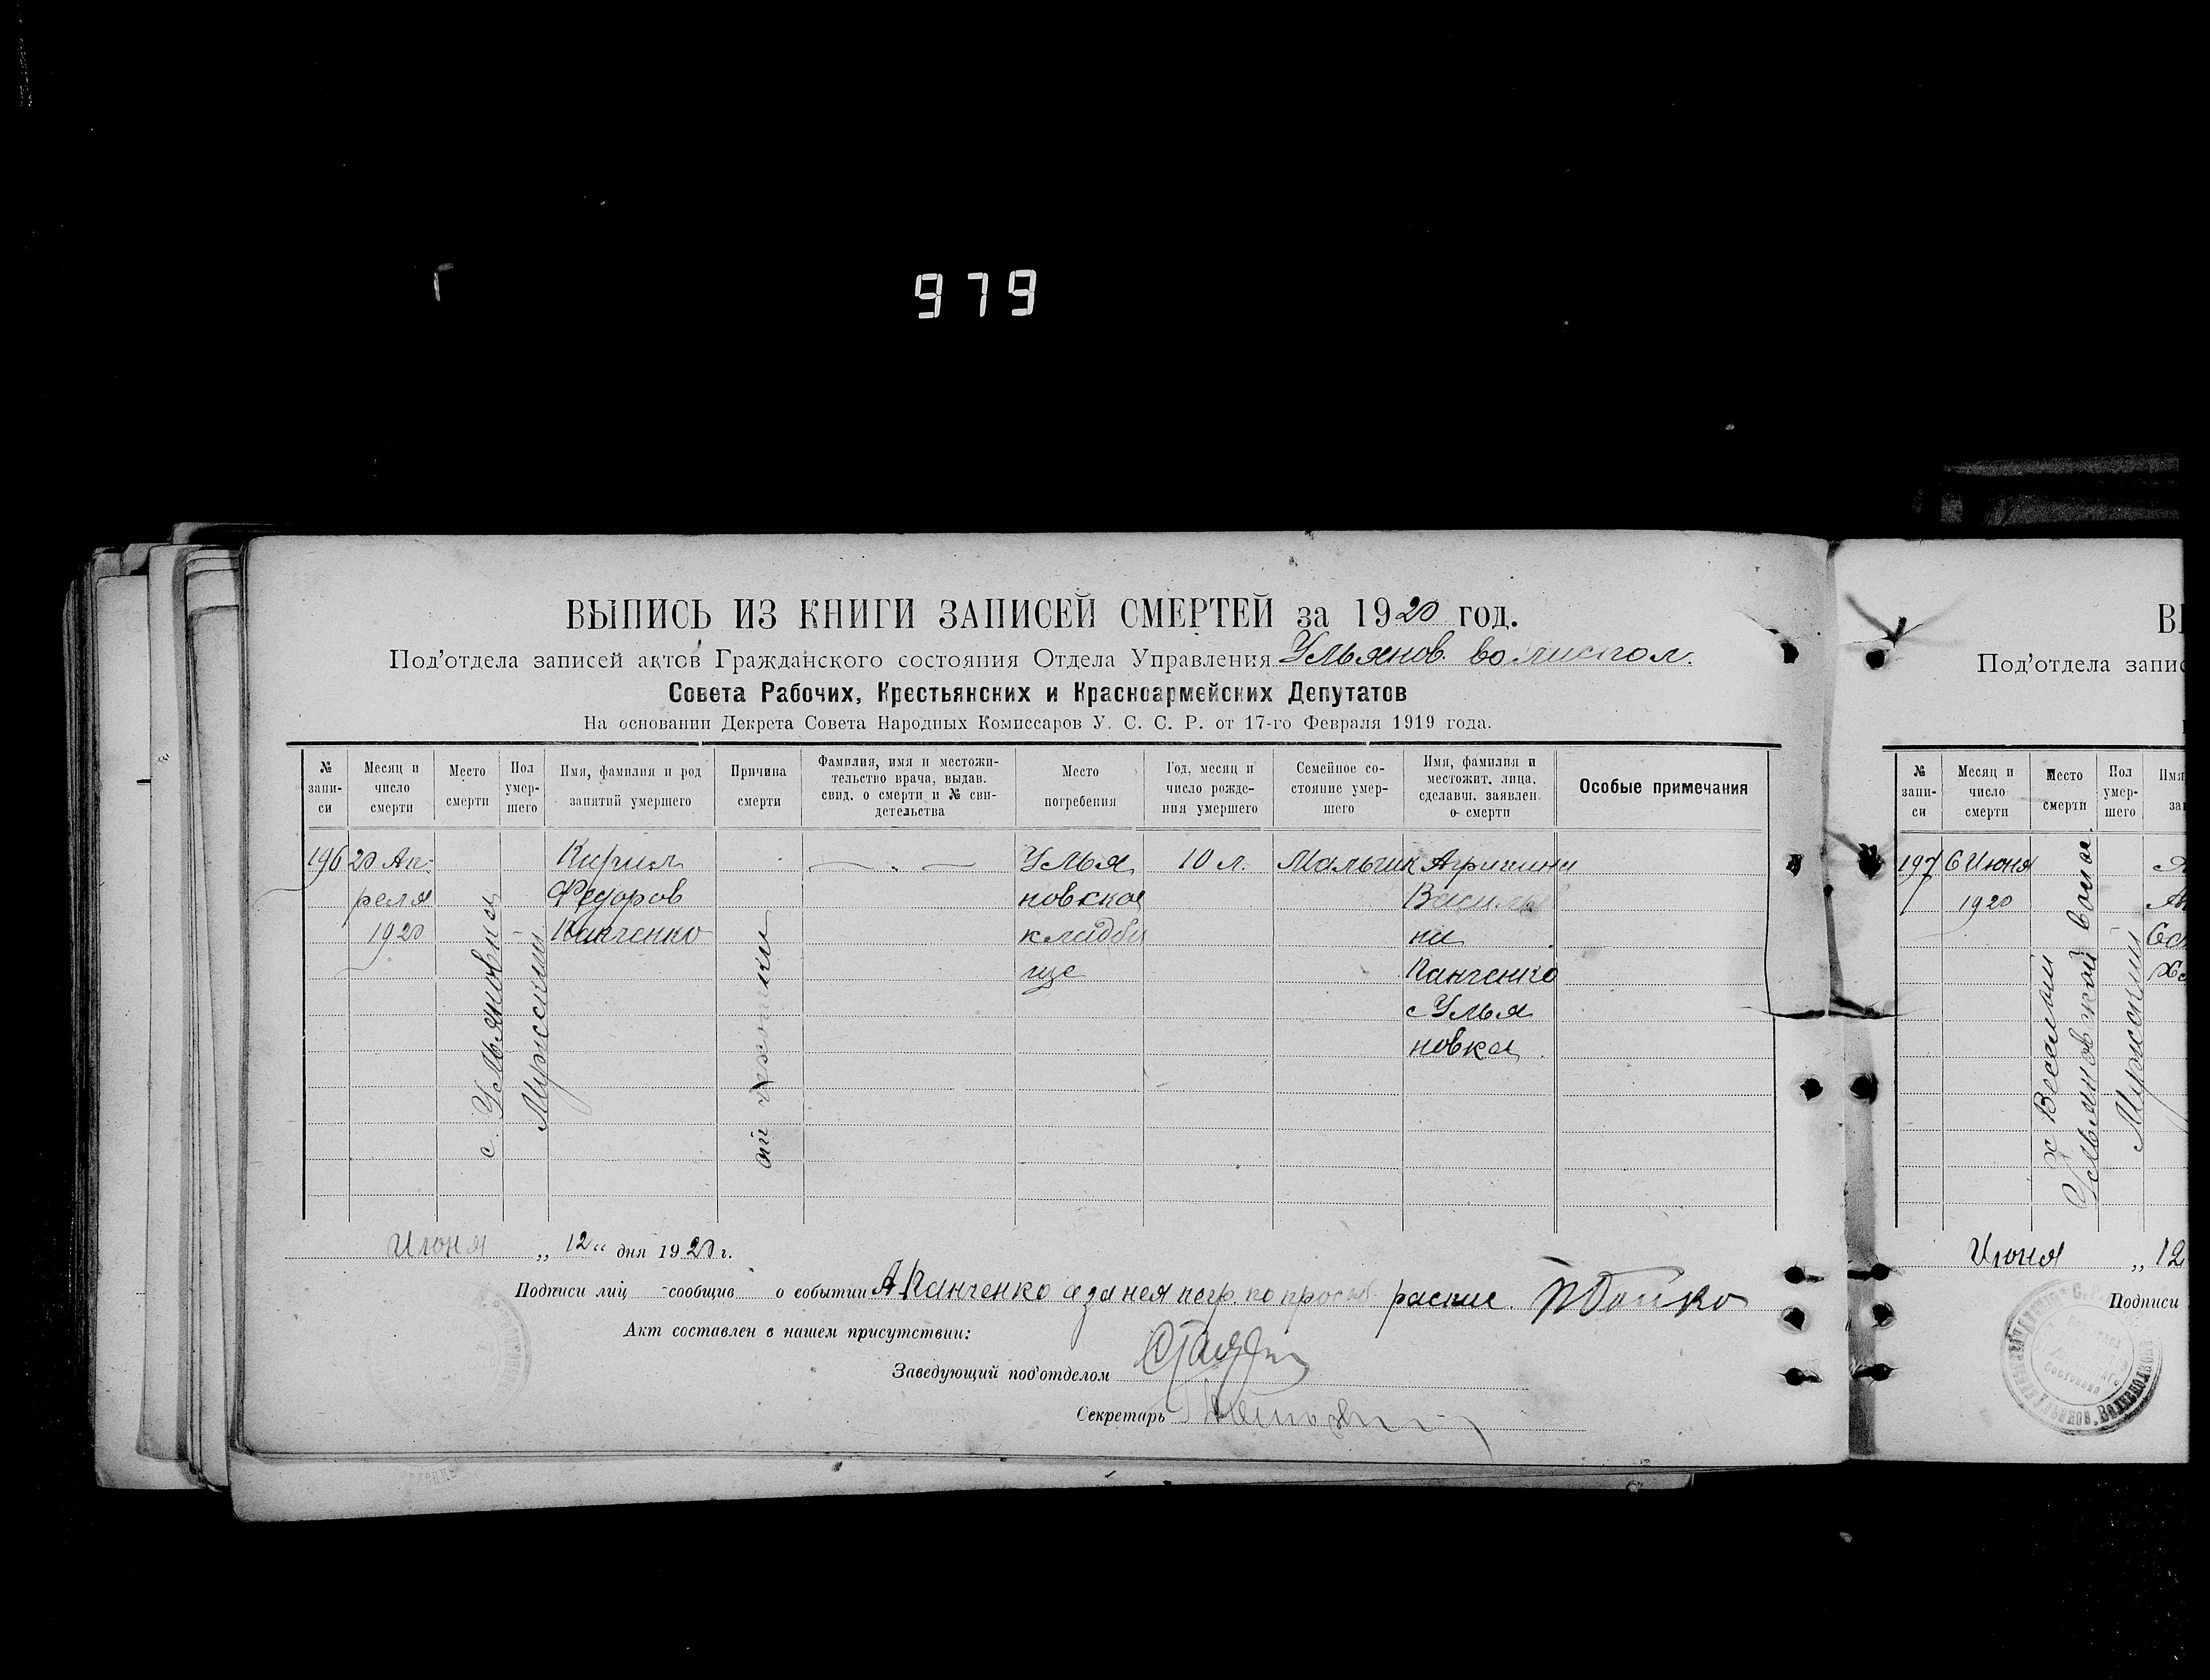 979
ВЫПИСЬ ИЗ КНИГИ ЗАПИСЕЙ СМЕРТЕЙ за 1920 год.
Под'отдела записей актов Гражданского состояния Отдела Управления Ульянов. волиспол.
Совета Рабочих, Крестьянских и Красноармейских Депутатов
На основании Декрета Совета Народных Комиссаров У. С. С. Р. от 17-го Февраля 1919 года.
№ запи-
си
Месяц и
число
смерти
Место
смерти
Пол
умер-
шего
Имя, фамилия и род
занятий умершего
Причина
смерти
Фамилия, имя и местожи-
тельство врача, выдав.
свид. о смерти и № сви-
детельства
Место
погребения
Год, месяц и
число рожде-
ния умершего
Семейное со-
стояние умер-
шего
Имя, фамилия и
местожит. лица,
сделавш. заявлен.
о смерти
Особые примечания
196
20 Ап-
реля
1920
с. Ульяновка
Мужской
Кирил
Федоров
Панченко
от чахотки
Улья
новское
кладби
ще
10 л.
Мальчик
Агрипина
Василье
на
Панченко
с Улья
новка
Июня „12“ дня 1920 г.
Подписи лиц сообщив о событии А Панченко а за нея негр. по прось распис. Бойко
Акт составлен в нашем присутствии:
Заведующий под'отделом
Секретарь
Под'отдела запис
№
запи-
си
Месяц и
число
смерти
Место
смерти
Пол
умер-
шего
Имя
197
6 Июня
1920
х Веселый
Ульяновской волос.
Мужской
Июня „12
Подписи